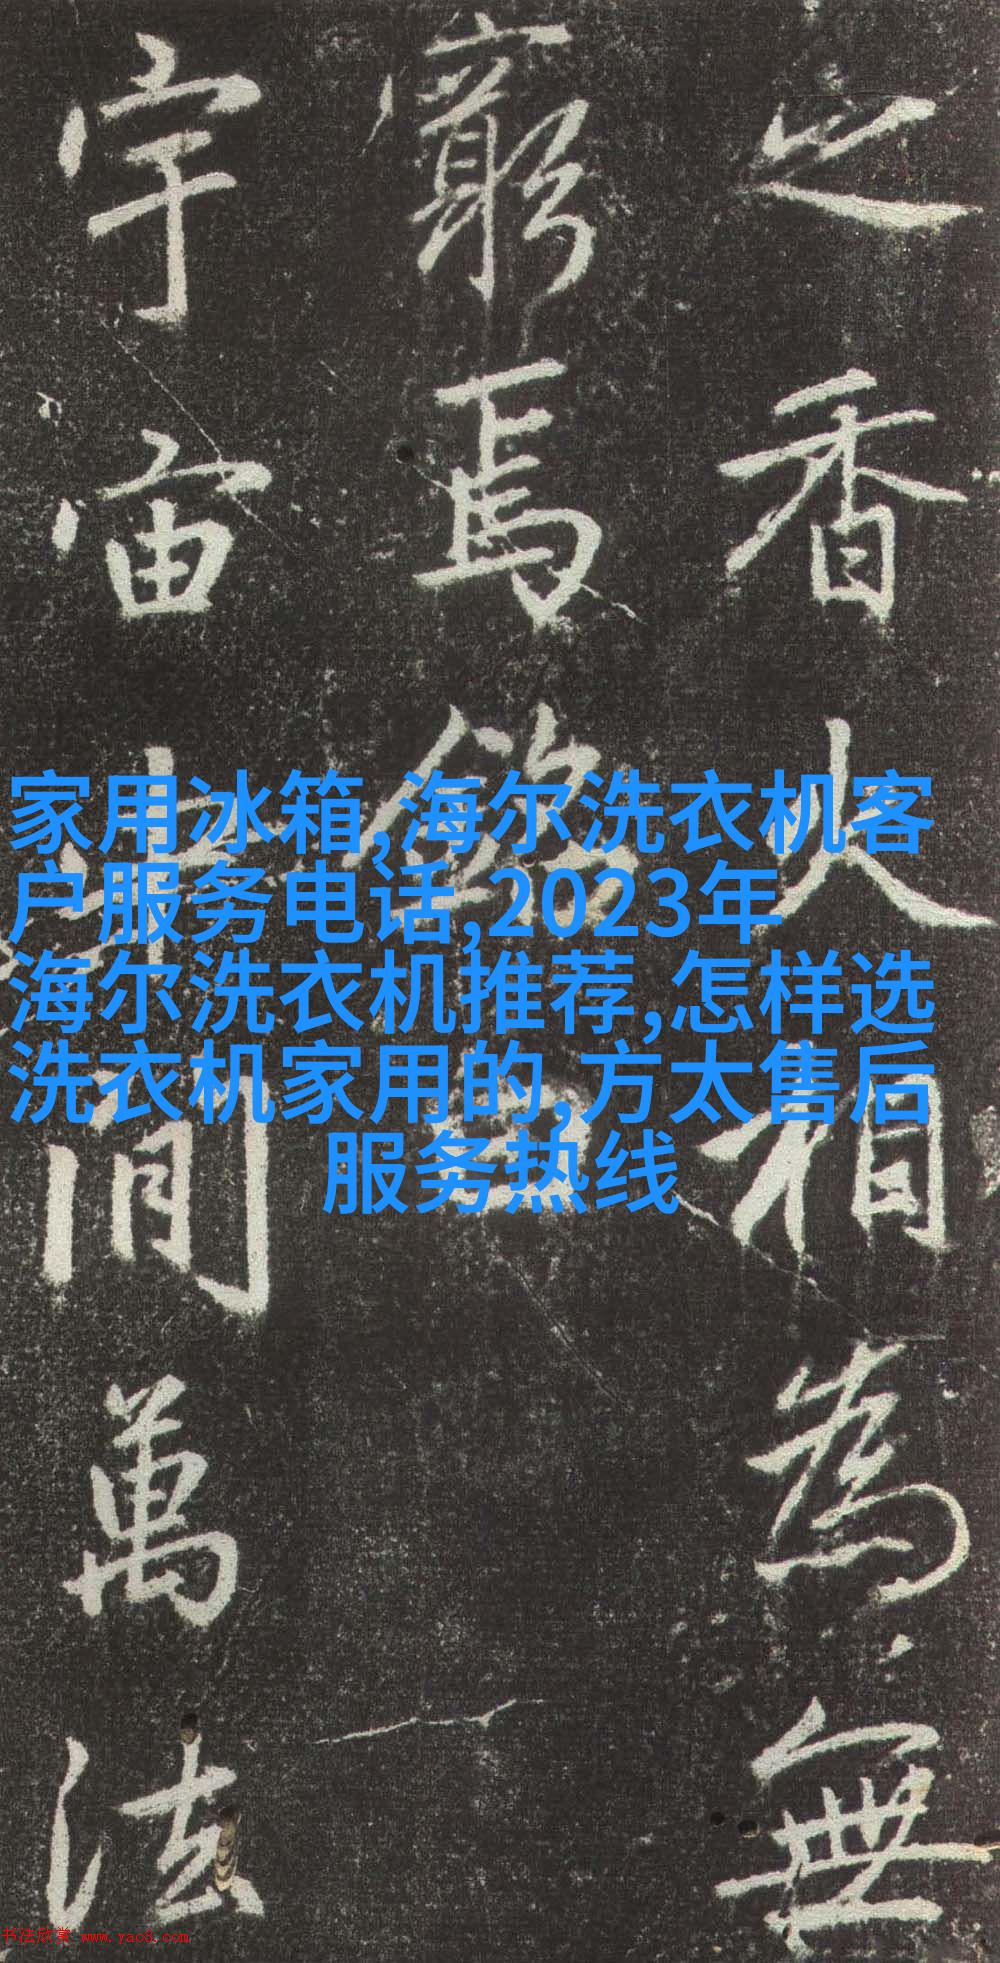 之香火相為無
窮焉銘曰
宇宙間萬法
家用冰箱,海尔洗衣机客
户服务电话,2023年
海尔洗衣机推荐,怎样选
洗衣机家用的,方太售后
服务热线
书法欣赏 www.yac8.com